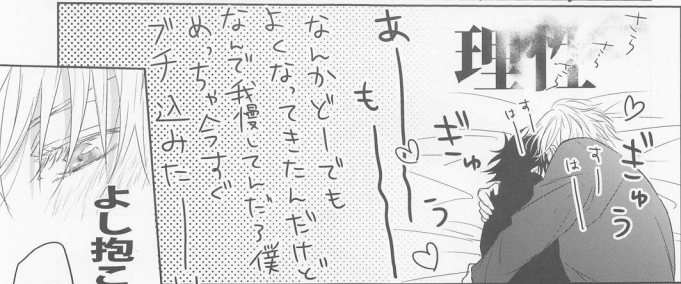 さら
さら
さら
理性
すー
はー
すー
はー
ぎゅ
ぎゅ
う
う
あーーー♡
もーーー♡
なんかどーでも
よくなってきたんだけど
なんで我慢してんだろ僕
めっちゃ今すぐ
ブチ込みたーー
よし抱こ